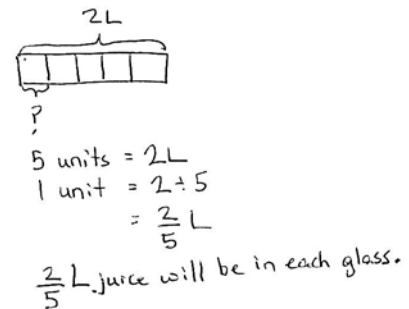 2L
?
5 units = 2L
1 unit = 2÷5
= 2/5 L
2/5 L juice will be in each glass.